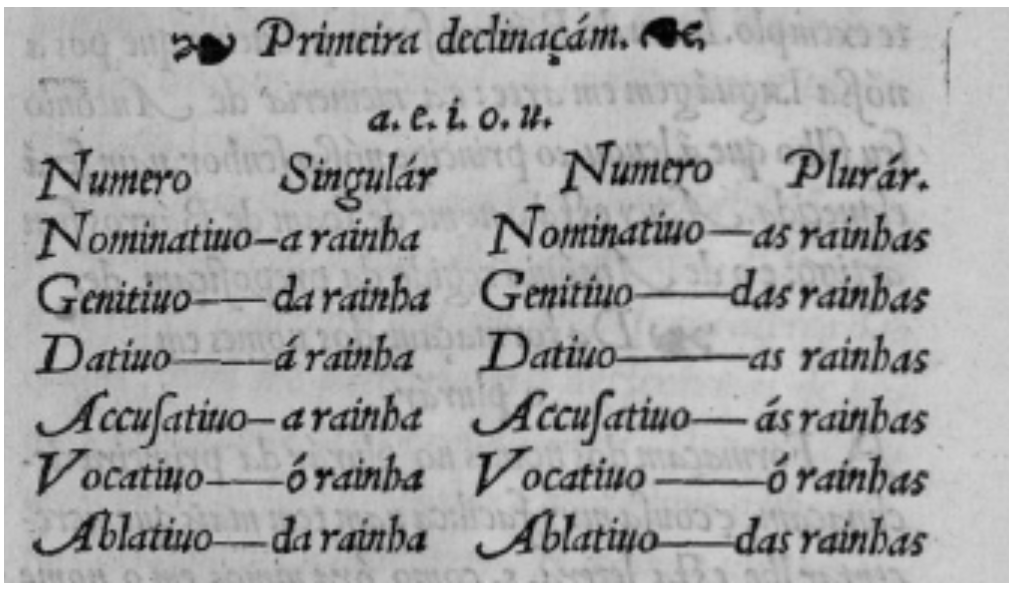 Primeira declinaçám.
a. e. i. o. u.
Numero Singulár Numero Plurár.
Nominatiuo—a rainha Nominatiuo—as rainhas
Genitiuo—da rainha Genitiuo—das rainhas
Datiuo—á rainha Datiuo—as rainhas
Accuſatiuo—a rainha Accuſatiuo—ás rainhas
Vocatiuo—ó rainha Vocatiuo—ó rainhas
Ablatiuo—da rainha Ablatiuo—das rainhas